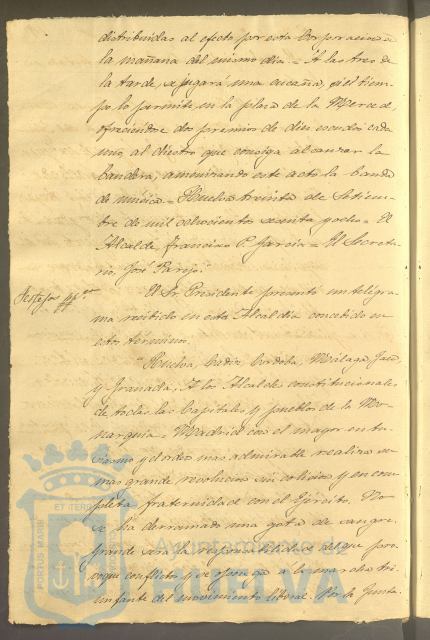 distribuidas al efecto por esta Corporacion
la mañana del mismo dia.- A las tres de
la tarde, se jugará una cucaña, si el tiem-
po lo permite en la plaza de la Merced,
ofreciendose dos premios de diez escudos cada
uno, al diestro que consiga alcanzar la
bandera, amenizando este acto la banda
de música - Huelva treinta de Setiem-
bre de mil ochocientos sesenta y ocho - El
Alcalde, Francisco P. Garcia - El Secreta-
rio, José Parejo."
Festejos pp.cos
El Sr. Presidente presentó un telegra-
ma recibido en esta Alcaldía concebido en
estos términos.
"Huelva, Cadiz, Cordoba, Málaga, Jaen
y Granada. A los Alcaldes constitucionales
de todas las Capitales y pueblos de la Mo-
narquia - Madrid con el mayor entu-
siasmo y el orden mas admirable realiza su
mas grande revolucion sin colision y en com-
pleta fraternidad con el Ejército. No
se ha derramado una gota de sangre.
Grande será la responsabilidad del que pro-
voque conflictos y se oponga a la marcha tri-
unfante del movimiento liberal. Por la Junta
ET TERRAE
PORTUS MARIS
Ayuntamiento de
HUELVA